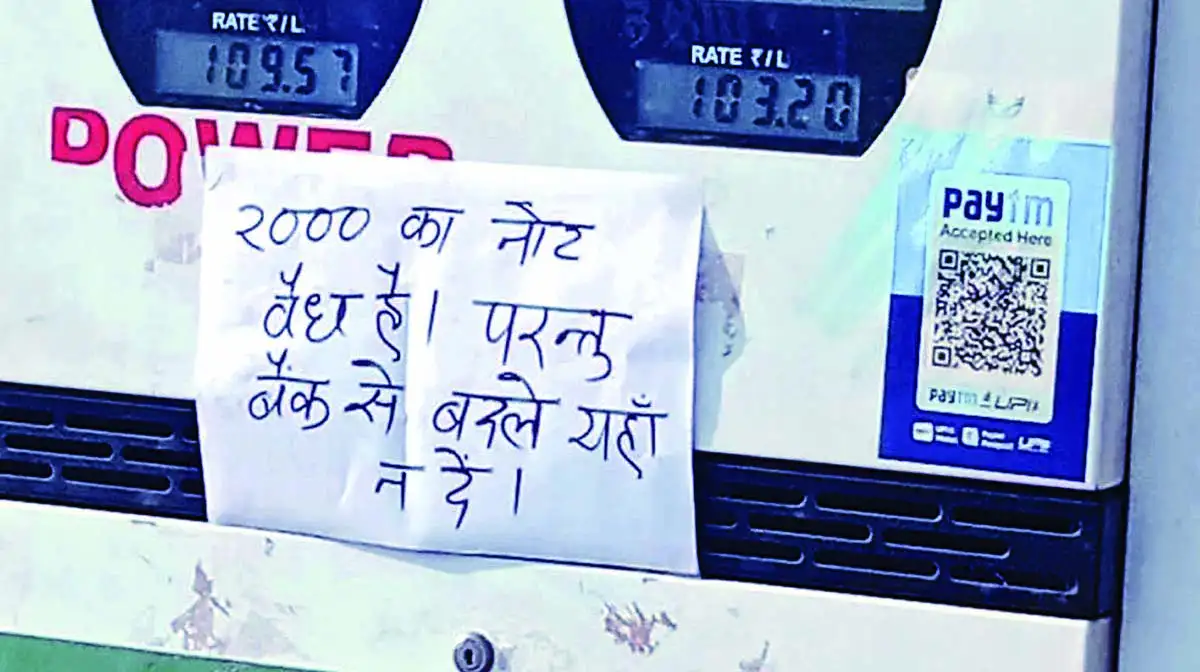 RATE ₹/L
109.57
RATE ₹/L
103.20
POWER
२००० का नोट
वैध है। परन्तु
बैंक से बदले यहाँ
न दें।
paytm
Accepted Here
paytm UPI